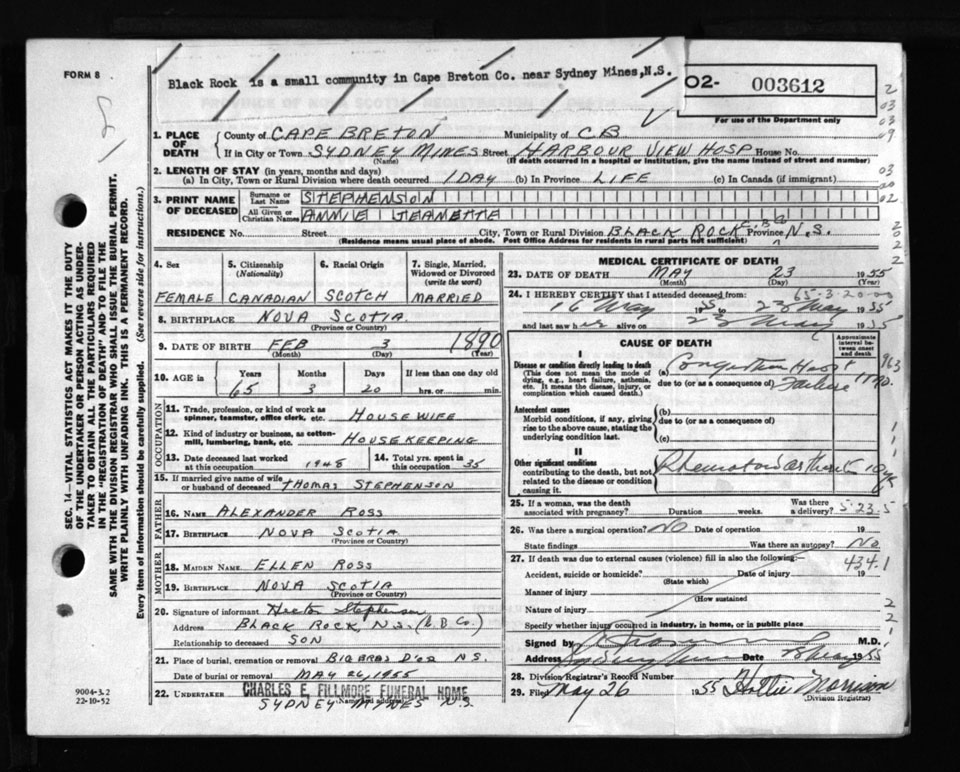 FORM 8
Black Rock is a small community in Cape Breton Co. near Sydney Mines, N.S.
02- 003612
For use of the Department only
1. PLACE OF DEATH
County of CAPE BRETON Municipality of C B
If in City or Town SYDNEY MINES Street HARBOUR VIEW HOSP House No.
(Name) (If death occurred in a hospital or institution, give the name instead of street and number)
2. LENGTH OF STAY (in years, months and days)
(a) In City, Town or Rural Division where death occurred 1 DAY (b) In Province LIFE (c) In Canada (if immigrant)
3. PRINT NAME OF DECEASED
Surname or Last Name STEPHENSON
All Given or Christian Names ANNIE JEANETTE
RESIDENCE No. Street City, Town or Rural Division BLACK ROCK C.B. Co Province N.S.
(Residence means usual place of abode. Post Office Address for residents in rural parts not sufficient)
4. Sex FEMALE
5. Citizenship (Nationality) CANADIAN
6. Racial Origin SCOTCH
7. Single, Married, Widowed or Divorced (write the word) MARRIED
8. BIRTHPLACE NOVA SCOTIA
(Province or Country)
9. DATE OF BIRTH FEB 3 1890
(Month) (Day) (Year)
10. AGE in Years Months Days If less than one day old
65 3 20 hrs. or min.
OCCUPATION
11. Trade, profession, or kind of work as spinner, teamster, office clerk, etc. HOUSEWIFE
12. Kind of industry or business, as cotton-mill, lumbering, bank, etc. HOUSEKEEPING
13. Date deceased last worked at this occupation 1948
14. Total yrs. spent in this occupation 35
15. If married give name of wife or husband of deceased THOMAS STEPHENSON
FATHER
16. NAME ALEXANDER ROSS
17. BIRTHPLACE NOVA SCOTIA
(Province or Country)
MOTHER
18. MAIDEN NAME ELLEN ROSS
19. BIRTHPLACE NOVA SCOTIA
(Province or Country)
20. Signature of informant Hector Stephenson
Address BLACK ROCK, N.S. (C B Co.)
Relationship to deceased SON
21. Place of burial, cremation or removal BIG BRAS D'OR N S.
Date of burial or removal MAY 26, 1955
22. UNDERTAKER CHARLES E. FILLMORE FUNERAL HOME
(Name and address)
SYDNEY MINES N.S.
MEDICAL CERTIFICATE OF DEATH
23. DATE OF DEATH MAY 23 1955
(Month) (Day)
65-3-20-00
24. I HEREBY CERTIFY that I attended deceased from:
16 May 1955 to 23 May 1955
and last saw her alive on 23 May 1955
CAUSE OF DEATH
Approximate interval between onset and death
I
Disease or condition directly leading to death
(This does not mean the mode of dying, e.g., heart failure, asthenia, etc. It means the disease, injury, or complication which caused death.)
(a) Congestive Heart Failure
due to (or as a consequence of)
Antecedent causes
Morbid conditions, if any, giving rise to the above cause, stating the underlying condition last.
(b)
due to (or as a consequence of)
(c)
II
Other significant conditions
contributing to the death, but not related to the disease or condition causing it.
Rheumatoid arthritis 10 yrs
25. If a woman, was the death associated with pregnancy? Duration weeks. Was there a delivery?
5-23-5
26. Was there a surgical operation? NO Date of operation 19
State findings Was there an autopsy? No
27. If death was due to external causes (violence) fill in also the following:—
434.1
Accident, suicide or homicide? Date of injury 19
(State which)
Manner of injury
(How sustained
Nature of injury
Specify whether injury occurred in industry, in home, or in public place
Signed by M.D.
Address Sydney Mines Date 28 May 1955
28. Division Registrar's Record Number
29. Filed May 26 1955 Hollie Morrison
(Division Registrar)
SEC. 14—VITAL STATISTICS ACT MAKES IT THE DUTY
OF THE UNDERTAKER OR PERSON ACTING AS UNDER-
TAKER TO OBTAIN ALL THE PARTICULARS REQUIRED
IN THE "REGISTRATION OF DEATH" AND TO FILE THE
SAME WITH THE DIVISION REGISTRAR WHO SHALL ISSUE THE BURIAL PERMIT.
WRITE PLAINLY WITH UNFADING INK. THIS IS A PERMANENT RECORD.
Every item of information should be carefully supplied. (See reverse side for instructions.)
9004-3.2
22-10-52